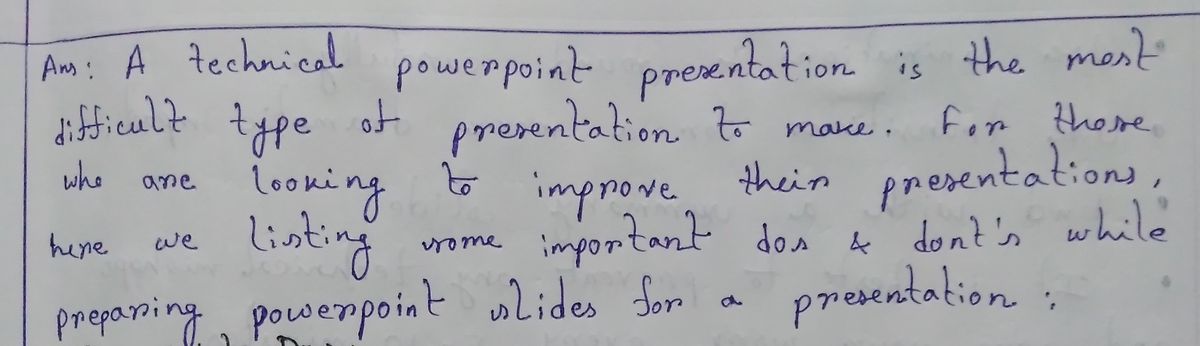 Ans: A technical powerpoint presentation is the most
difficult type of presentation to make. For those
who are looking to improve their presentations,
here we listing some important dos & dont's while
preparing powerpoint slides for a presentation :